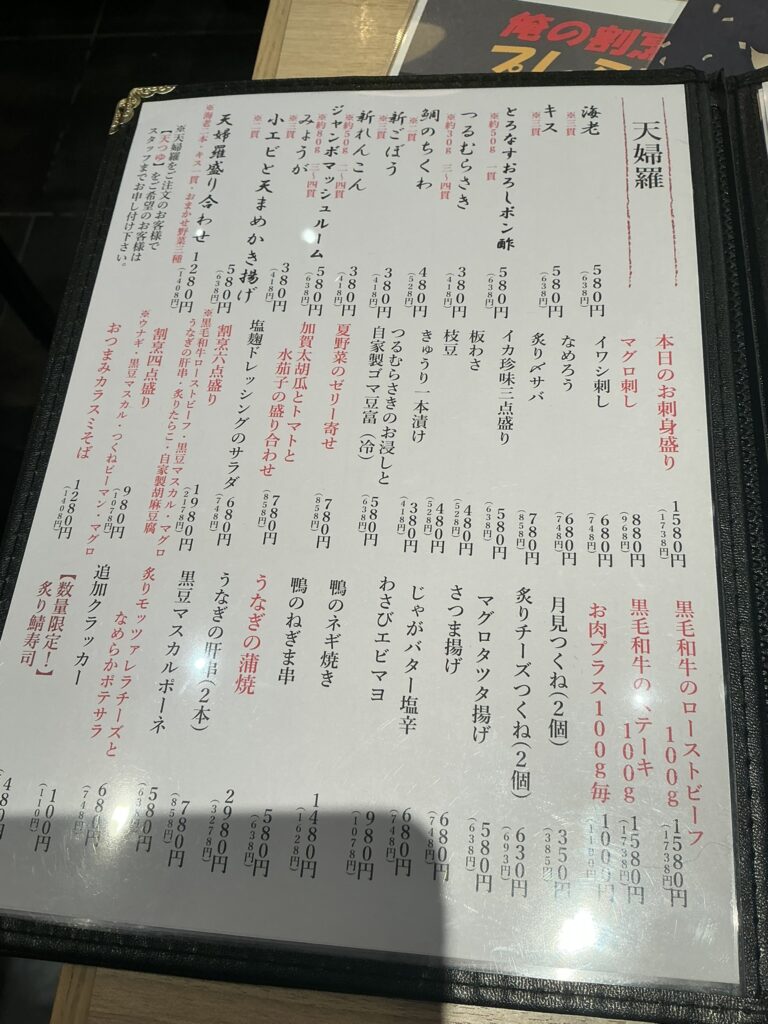 俺の割烹
天婦羅
海老
※二貫
580円
(638円)
キス
※三貫
580円
(638円)
とろなすおろしポン酢
※約50g 一貫
580円
(638円)
つるむらさき
※約30g 三〜四貫
380円
(418円)
鯛のちくわ
※二貫
480円
(528円)
新ごぼう
※二貫
380円
(418円)
新れんこん
※約50g 二〜四貫
380円
(418円)
ジャンボマッシュルーム
※約80g 三〜四貫
580円
(638円)
みょうが
※二貫
380円
(418円)
小エビと天まめかき揚げ
※二貫
580円
(638円)
天婦羅盛り合わせ
※海老二本・キス一貫・おまかせ野菜三種
1280円
(1408円)
※天婦羅をご注文のお客様で
【天つゆ】をご希望のお客様は
スタッフまでお申し付け下さい。
本日のお刺身盛り
1580円
(1738円)
マグロ刺し
880円
(968円)
イワシ刺し
680円
(748円)
なめろう
680円
(748円)
炙り〆サバ
780円
(858円)
イカ珍味三点盛り
580円
(638円)
板わさ
480円
(528円)
枝豆
480円
(528円)
きゅうり一本漬け
380円
(418円)
つるむらさきのお浸しと
自家製ゴマ豆富(冷)
580円
(638円)
夏野菜のゼリー寄せ
780円
(858円)
加賀太胡瓜とトマトと
水茄子の盛り合わせ
780円
(858円)
塩麹ドレッシングのサラダ
680円
(748円)
割烹六点盛り
※黒毛和牛ローストビーフ・黒豆マスカル・マグロ
うなぎの肝串・炙りたらこ・自家製胡麻豆腐
1980円
(2178円)
割烹四点盛り
※ウナギ・黒豆マスカル・つくねピーマン・マグロ
980円
(1078円)
おつまみカラスミそば
1280円
(1408円)
黒毛和牛のローストビーフ
100g
1580円
(1738円)
黒毛和牛のステーキ
100g
1580円
(1738円)
お肉プラス100g毎
1000円
(1100円)
月見つくね(2個)
350円
(385円)
炙りチーズつくね(2個)
630円
(693円)
マグロタツタ揚げ
580円
(638円)
さつま揚げ
680円
(748円)
じゃがバター塩辛
680円
(748円)
わさびエビマヨ
980円
(1078円)
鴨のネギ焼き
1480円
(1628円)
鴨のねぎま串
580円
(638円)
うなぎの蒲焼
2980円
(3278円)
うなぎの肝串(2本)
780円
(858円)
黒豆マスカルポーネ
580円
(638円)
炙りモッツァレラチーズと
なめらかポテサラ
680円
(748円)
追加クラッカー
100円
(110円)
【数量限定!】
炙り鯖寿司
480円